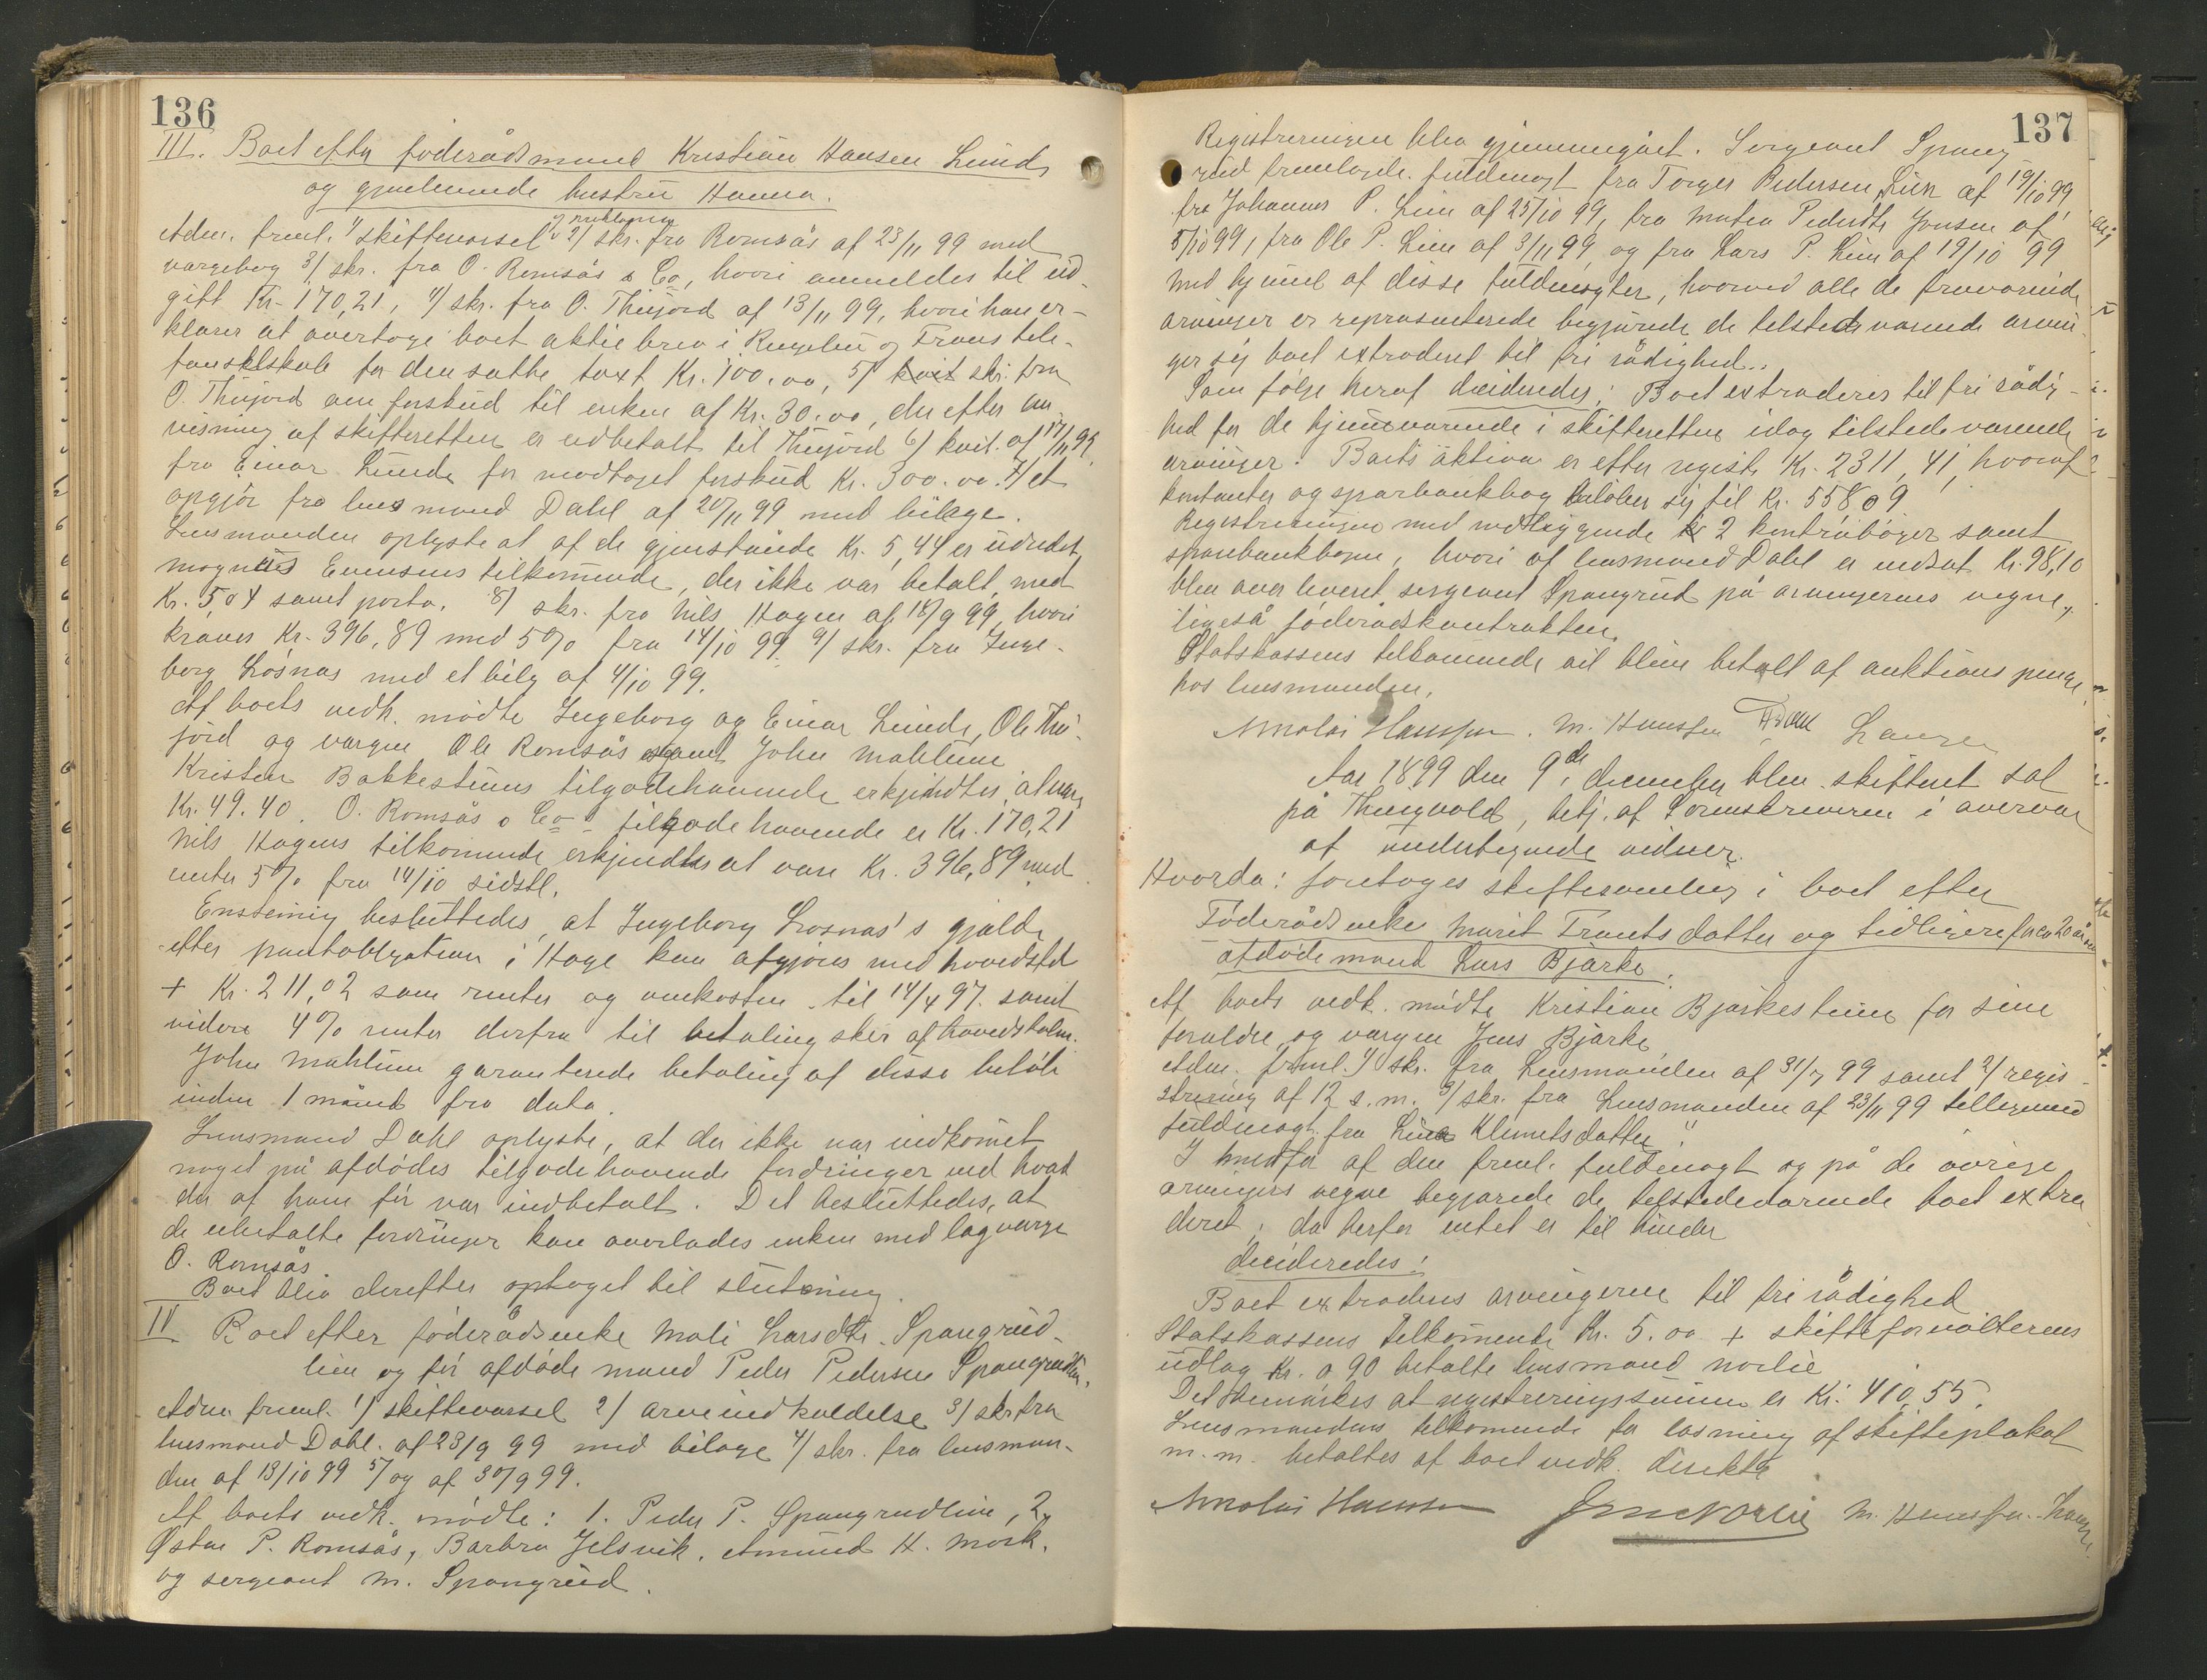 136
III. Boet efter føderådsmand Kristian Hansen Lunde
og gjenlevende hustru Hanna.
Adm. freml. 1/ skiftevarsel og reklamen 2/ skr. fra Romsås af 23/11 99 med
vargebog 3/ skr. fra O. Romsås & Co, hvori anmeldes til ud-
gift Kr. 170,21, 4/ skr. fra O. Thujord af 13/11 99, hvori han er-
klarer at overtage boet aktiebrev i Ringebu og Frons tele-
fonselskab for den satte taxt Kr. 100.00, 5/ kvit skr. fra
O. Thujord om forskud til enken af Kr. 30.00, der efter an-
visning af skifteretten er udbetalt til Thujord 6/ kvit. af 17/11 99
fra Einar Lunde for modtaget forskud Kr. 300.00. 7/ et
opgjör fra lensmand Dahl af 20/11 99 med bilage.
Lensmanden oplyste at af de gjenstående Kr. 5,44 er udredet
magnus Evensens tilkommende, der ikke var betalt, med
Kr. 5,04 samt porto. 8/ skr. fra Nils Hagen af 18/9 99, hvori
kraves Kr. 396,89 med 5% fra 14/10 99 9/ skr. fra Inge-
borg Losnas med et bilg af 4/10 99.
Af boets vedk. mödte Ingeborg og Einar Lunde, Ole Thu-
jord og vargen Ole Romsås samt John Mahlum
Kristen Bakkestuens tilgodehavende erkjendtes at vare
Kr. 49.40. O. Romsås & Co tilgodehavende er Kr. 170,21
Nils Hagens tilkommende erkjendtes at vare Kr. 396,89 med
renter 5% fra 14/10 sidstl.
Enstemig besluttedes, at Ingeborg Losnas's gjalde
efter pantobligation i Hage kan afgjöres med hovedstol
+ Kr. 211,02 som renter og omkosten til 14/4 97. samt
videre 4% renter derfra til betaling sker af hovedstolen.
John Mahlum garanterede betaling af disse belöb
inden 1 måned fra dato.
Lensmand Dahl oplyste, at der ikke var indkommet
noget på afdödes tilgodehavende fordringer ud hvad
der af ham för var indbetalt. Det besluttedes, at
de ubetalte fordringer kan overlades enken med lagvarge
O. Romsås
Boet blev derefter optaget til slutning.
IV Boet efter föderådsenke Mali Larsdtr. Spangrud-
lien og för afdöde mand Peder Pedersen Spangrudlien.
Adm. freml. 1/ skiftevarsel 2/ arveindkaldelse 3/ skr. fra
lensmand Dahl af 23/9 99 med bilage 4/ skr. fra lensman-
den af 13/10 99 5/ og af 30/9 99.
Af boets vedk. mödte: 1. Peder P. Spangrudlien, 2.
Østen P. Romsås, Barbra Jelsvik, Amund H. Mork,
og sergeant M. Spangrud.
137
Registreringen blev gjennemgået. Sergeant Spang
rud fremlagde fuldmagt fra Torger Pedersen Lien af 19/10 99
fra Johannes P. Lien af 25/10 99, fra Matea Pedersdtr Jonsen af
5/10 99, fra Ole P. Lien af 3/11 99, og fra Lars P. Lien af 19/10 99
Med hjemmel af disse fuldmagter, hvorved alle de fravarende
arvinger er reprasenterede begjärede de tilstedevarende arvin-
ger sig boet extraderet til fri rådighed.
Som fölge heraf decideredes: Boet extraderes til fri rådig-
hed for de hjemmevarende i skifteretten idag tilstedevarende
arvinger. Boets aktiva er efter registr. Kr. 2311,41, hvoraf
kontanter og sparbankbog belöber sig til Kr. 558 09
Registreringen med vedlæggende 2 kontraböger samt
sparebankbogen, hvori af lensmand Dahl er indsat Kr. 98,10
blev overleveret sergeant Spangrud på arvingernes vegne,
ligeså föderådskontrakten.
Statskassens tilkommende vil blive betalt af auktions penge
hos lensmanden.
Nicolai Hanssen. M. Hanssen Dahl Lange
Aar 1899 den 9de december blev skifteret sat
på Thingvold, betj. af Sorenskriveren i overvar
af undertegnede vidner.
Hvorda: foretoges skiftesamling i boet efter
Föderådsenke Marit Frantsdatter og tidligere for ca 20 år
afdöde mand Lars Bjärke.
Af boets vedk. mödte Kristian Bjärkestuen for sine
foraldre og vargen Jens Bjärke
Adm. freml. 1/ skr. fra Lensmanden af 31/7 99 samt 2/ regis-
strering af 12 s.m. 3/ skr. fra Lensmanden af 23/11 99 tilligemed
fuldmagt fra Lina Klemetsdatter.
I henhold af den freml. fuldmagt og på de övrige
arvingers vegne begjarede de tilstedevarende boet extra
deret; da herfor intet er til hinder
decideredes:
Boet extraderes arvingerne til fri rådighed
Statskassens tilkommende Kr. 5.00 + skifteforvalterens
udlag Kr. 0 90 betalte lensmand Norlie
Det bemärkes at registreringssummen er Kr. 410,55.
Lensmandens tilkommende for läsning af skifteplakat
m.m. betaltes af boet vedk. direkte
Nicolai Hanssen Norlie M. Hanssen. Lange